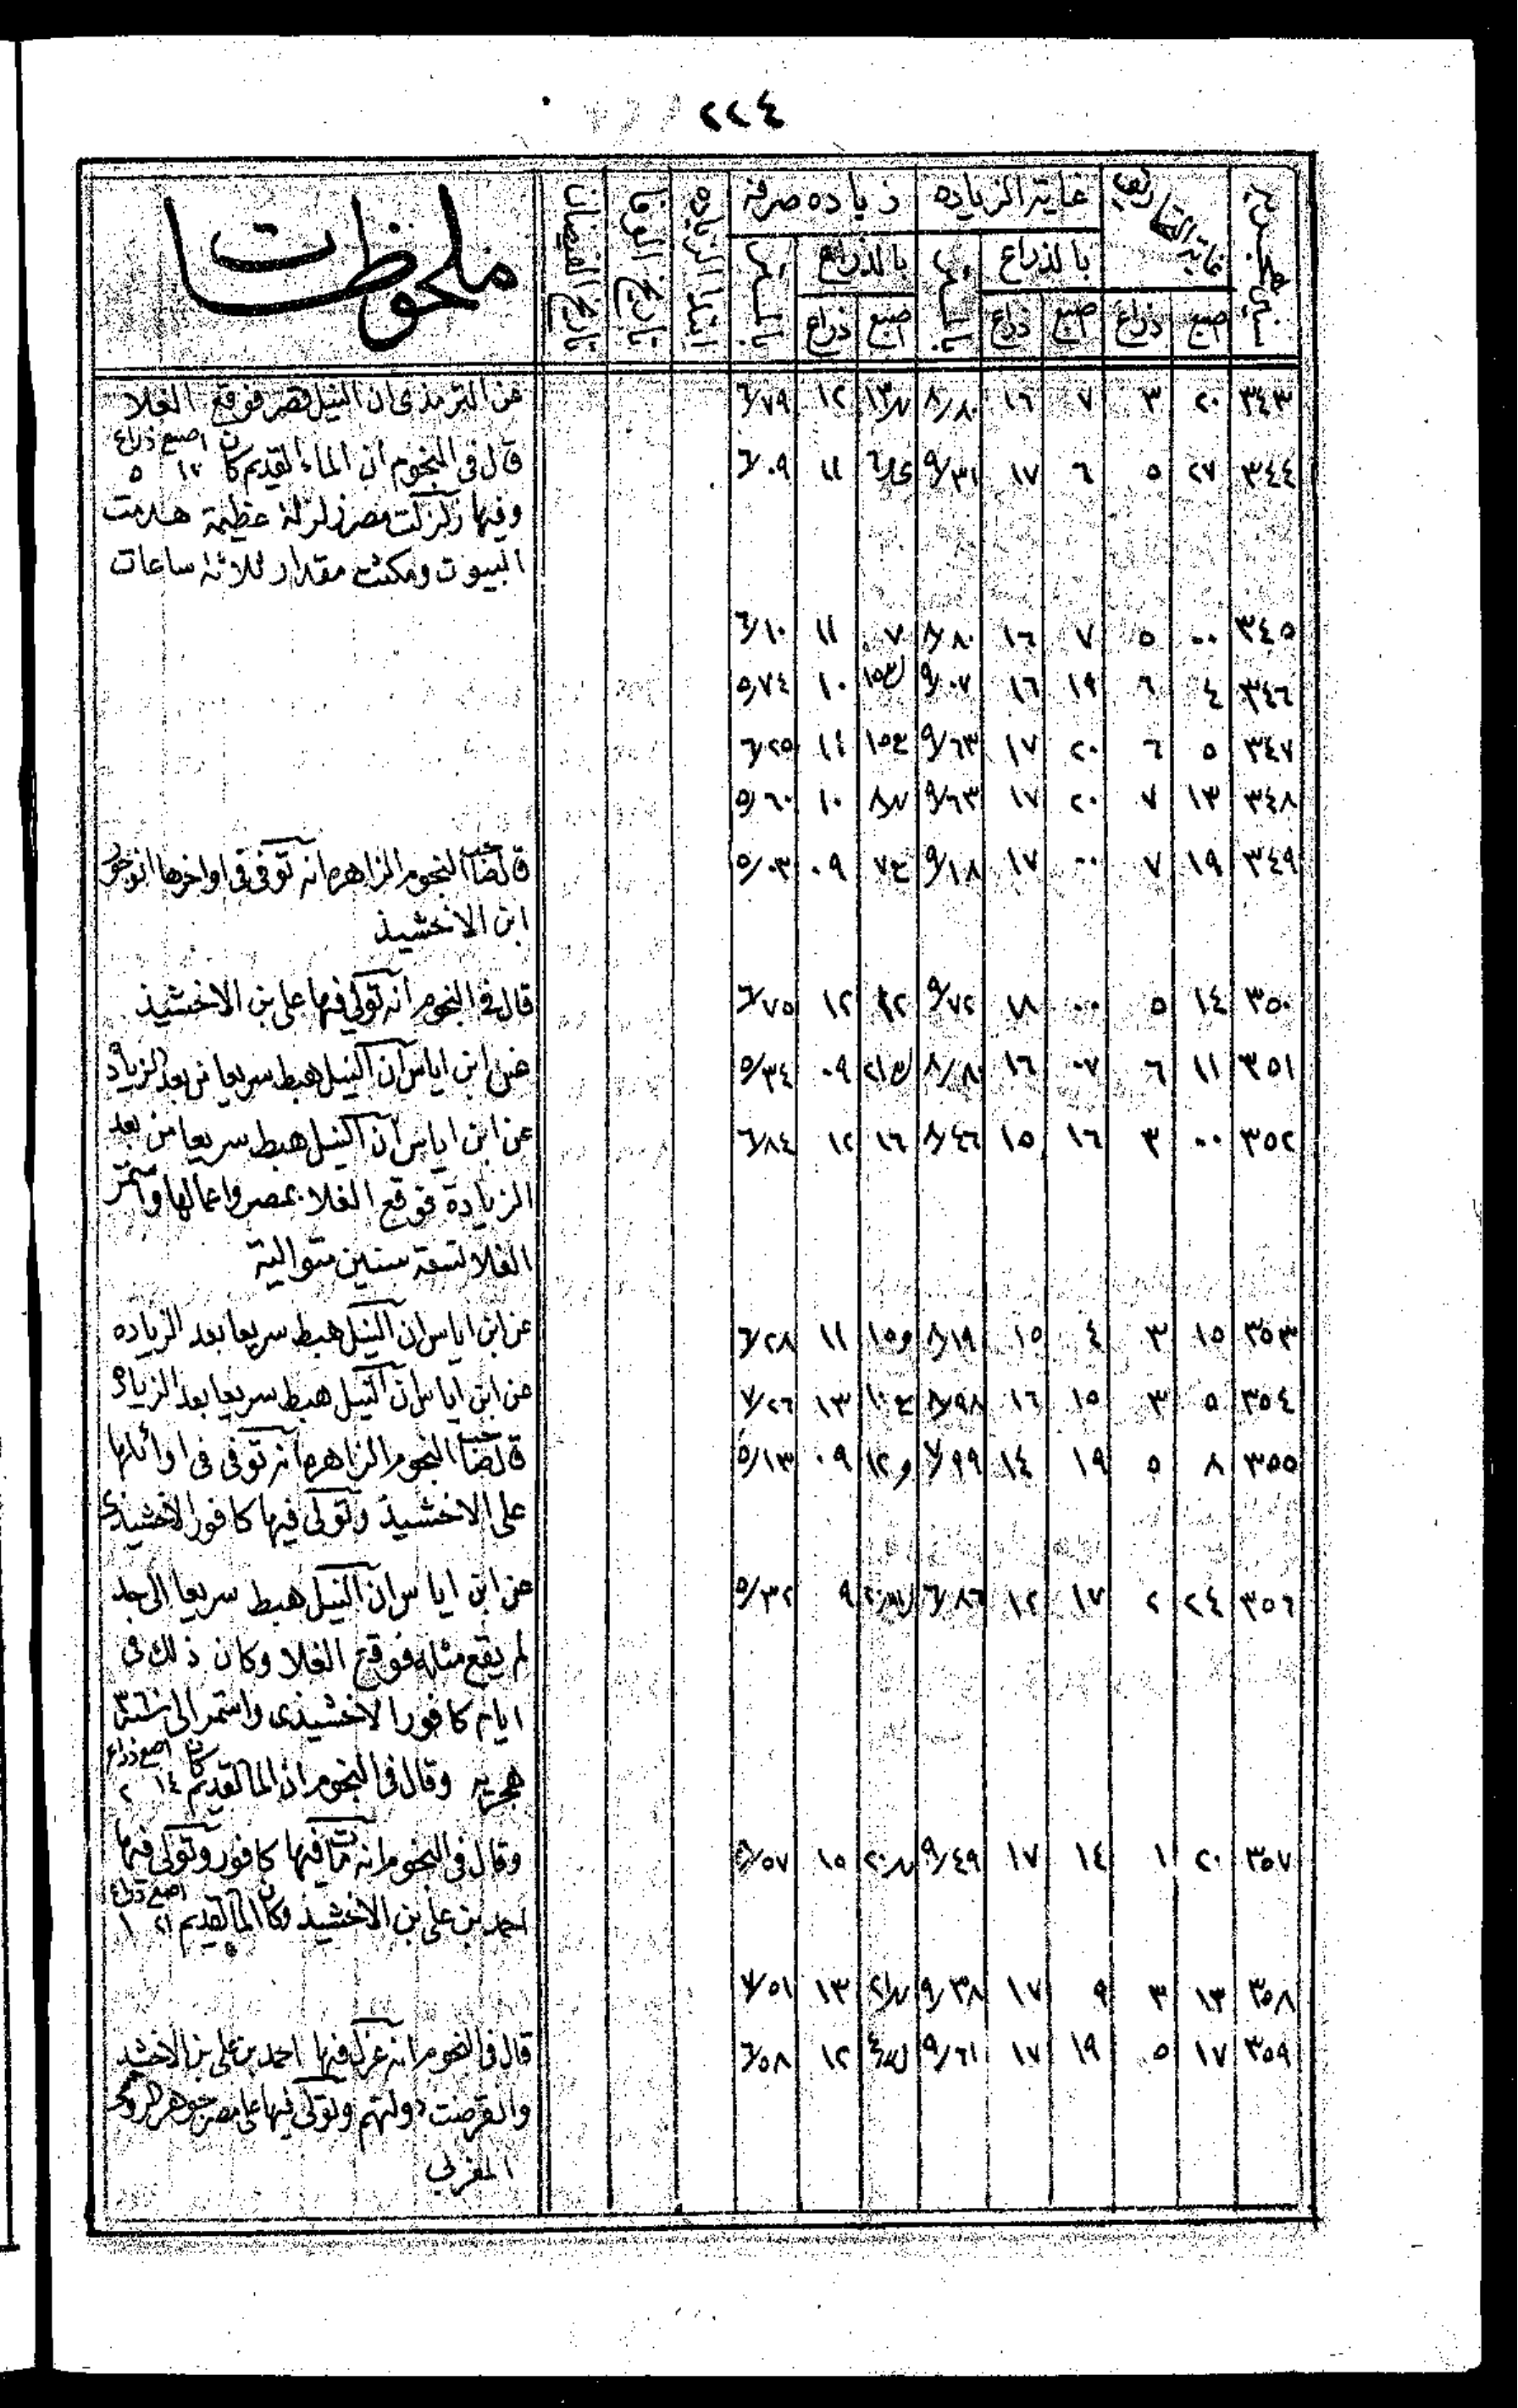 ٢٢٤
سنين هلالية غاية التحاريق غاية الزياده زياده صرفة ابتدا الزياده تاريخ الوفا تاريخ الفيضان ملحوظات
بالذراع بالمتر بالذراع بالمتر
اصبع ذراع اصبع ذراع اصبع ذراع
٣٤٣ ٢٠ ٣ ٧ ١٦ ٨/٨٠ ١٢ ٦/٧٩ عن الترمذى ان النيل قصر فوقع الغلا
٣٤٤ ٢٧ ٥ ٦ ١٧ ٩/٣١ ١١ ٦/٠٩ قال فى النجوم ان الماء القديم كان اصبع ١٧ ذراع ٥
وفيها زلزلت مصر زلزلة عظيمة هدمت
البيوت ومكثت مقدار ثلاثة ساعات
٣٤٥ ٠٠ ٥ ٧ ١٦ ٨/٨٠ ٧ ١١ ٦/١٠
٣٤٦ ٤ ٦ ١٩ ١٦ ٩/٠٧ ١٠ ٥/٧٤
٣٤٧ ٥ ٦ ٢٠ ١٧ ٩/٦٣ ١١ ٦/٢٥
٣٤٨ ١٣ ٧ ٢٠ ١٧ ٩/٦٣ ١٠ ٥/٦٠
٣٤٩ ١٩ ٧ ٠٠ ١٧ ٩/١٨ ٠٩ ٥/٠٣ قال صاحب النجوم الزاهره انه توفى فى اواخرها انوجور
ابن الاخشيذ
٣٥٠ ١٤ ٥ ٠٠ ١٨ ٩/٧٢ ١٢ ٦/٧٥ قال فى النجوم انه تولى فيها على بن الاخشيذ
٣٥١ ١١ ٦ ٠٧ ١٦ ٨/٨٠ ٠٩ ٥/٣٤ عن ابن اياس ان النيل هبط سريعا من بعد الزياده
٣٥٢ ٠٠ ٣ ١٦ ١٥ ٨/٤٦ ١٦ ١٢ ٦/٨٤ عن ابن اياس ان النيل هبط سريعا من بعد
الزيادة فوقع الغلا بمصر واعمالها واستمر
الغلا تسعة سنين متوالية
٣٥٣ ١٥ ٣ ٤ ١٥ ٨/١٩ ١١ ٦/٢٨ عن ابن اياس ان النيل هبط سريعا بعد الزياده
٣٥٤ ٥ ٣ ١٥ ١٦ ٨/٩٨ ١٣ ٧/٢٦ عن ابن اياس ان النيل هبط سريعا بعد الزياده
٣٥٥ ٨ ٥ ١٩ ١٤ ٧/٩٩ ٠٩ ٥/١٣ قال صاحب النجوم الزاهره انه توفى فى اوائلها
على الاخشيذ وتولى فيها كافور الاخشيذى
٣٥٦ ٢٤ ٢ ١٧ ١٢ ٦/٨٦ ٩ ٥/٣٢ عن ابن اياس ان النيل هبط سريعا الى حد
لم يقع مثله فوقع الغلا وكان ذلك فى
ايام كافور الاخشيذى واستمر الى سنة ٣٦٠
هجريه وقال فى النجوم ان الما القديم كان اصبع ١٤ ذراع ٢
٣٥٧ ٢٠ ١ ١٤ ١٧ ٩/٤٩ ١٥ ٥٧ وقال فى النجوم انه مات فيها كافور وتولى فيها
احمد بن على بن الاخشيذ وكان الما القديم اصبع ٢١ ذراع ١
٣٥٨ ١٣ ٣ ٩ ١٧ ٩/٣٨ ١٣ ٧/٥١
٣٥٩ ١٧ ٥ ١٩ ١٧ ٩/٦١ ١٢ ٦/٥٨ قال فى النجوم انه عزل فيها احمد بن على بن الاخشيذ
وانقرضت دولتهم وتولى فيها على مصر جوهر الرومى
المغربى